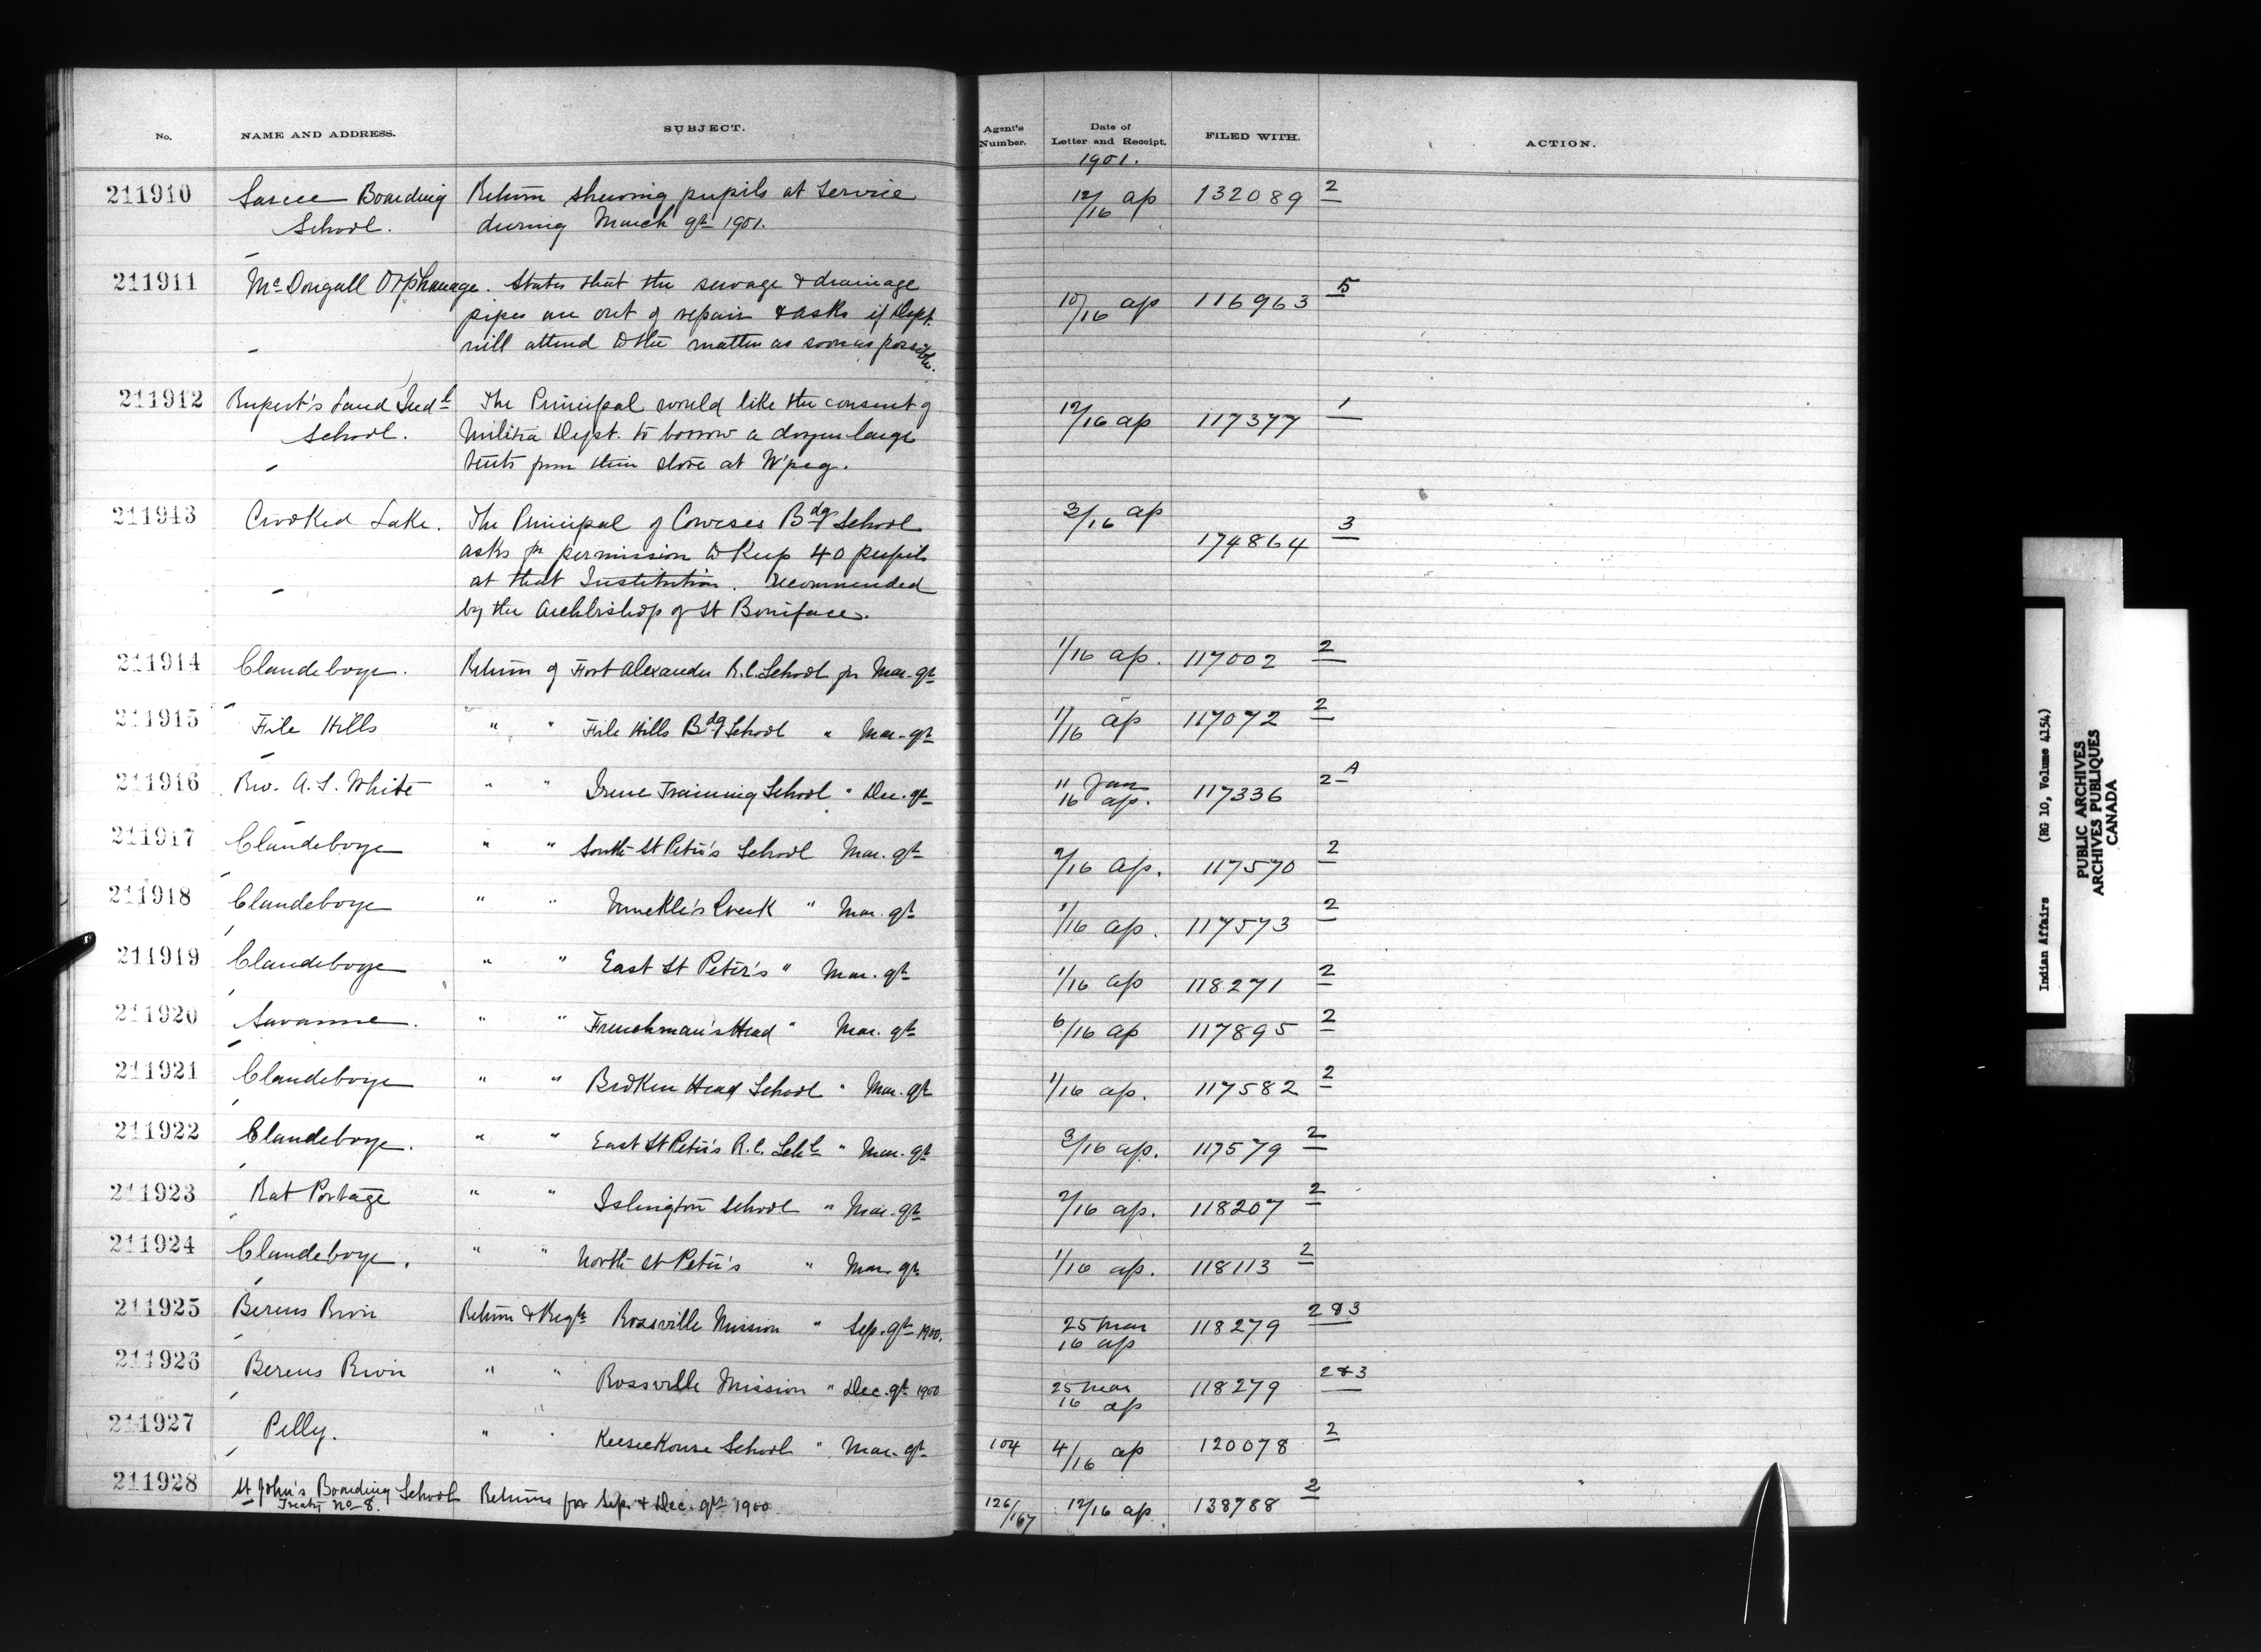 No. NAME AND ADDRESS. SUBJECT. Agent's Number. Date of Letter and Receipt. FILED WITH. ACTION.
1901.
211910 Sarcee Boarding Return shewing pupils at Service 12/16 ap 132089 2
School. during March qr 1901.
211911 McDougall Orphanage. States that the sewage & drainage 10/16 ap 116963 5
pipes are out of repair & asks if Dept.
will attend to the matter as soon as possible.
211912 Rupert's Land Indl The Principal would like the consent of 12/16 ap 117377 1
School. Militia Dept. to borrow a dozen large
tents from their store at W'peg.
211913 Crooked Lake. The Principal of Coweses Bdg School 3/16 ap 174864 3
asks for permission to keep 40 pupils
at that Institution. Recommended
by the Archbishop of St Boniface.
211914 Clandeboye. Return of Fort Alexander R.C. School for Mar. qr 1/16 ap. 117002 2
211915 File Hills " " File Hills Bdg School " Mar. qr 11/16 ap 117072 2
211916 Rev. A. S. White " " Irene Training School " Dec. qr 11 Jan 16 ap. 117336 2 A
211917 Clandeboye " " South St Peter's School Mar. qr 2/16 ap. 117570 2
211918 Clandeboye " " Muckle's Creek " Mar. qr 1/16 ap. 117573 2
211919 Clandeboye " " East St Peter's " Mar. qr 1/16 ap 118271 2
211920 Savanne. " " Frenchman's Head " Mar. qr 6/16 ap 117895 2
211921 Clandeboye " " Broken Head School " Mar. qr 1/16 ap. 117582 2
211922 Clandeboye. " " East St Peter's R.C. Schl " Mar. qr 3/16 ap. 117579 2
211923 Rat Portage " " Islington School " Mar. qr 2/16 ap. 118207 2
211924 Clandeboye. " " North St Peter's " Mar. qr 1/16 ap. 118113 2
211925 Berens River Return & Regr Rossville Mission " Sep. qr 1900. 25 Mar 16 ap 118279 2 & 3
211926 Berens River " " Rossville Mission " Dec. qr 1900 25 Mar 16 ap 118279 2 & 3
211927 Pelly. " " Keeseekouse School " Mar. qr 104 4/16 ap 120078 2
211928 St John's Boarding School Returns for Sep. & Dec. qrs 1900 126/167 12/16 ap. 138788 2
Treaty No 8.
Indian Affairs (RG 10, Volume 4154)
PUBLIC ARCHIVES
ARCHIVES PUBLIQUES
CANADA